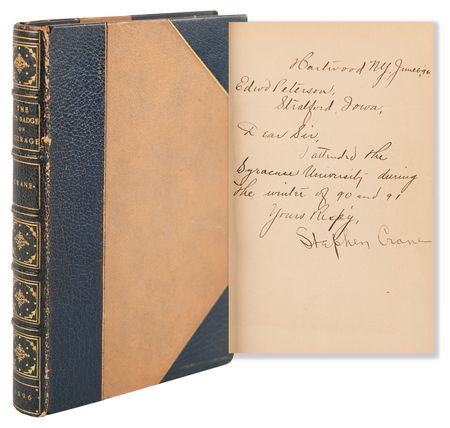 THE
RED BADGE
OF
COURAGE
CRANE
1896
Hartwood N.Y. June 6, 96
Edwd Peterson,
Stratford, Iowa,
Dear Sir,
I attended the
Syracuse University during
the winter of 90 and 91
Yours Resp'y,
Stephen Crane